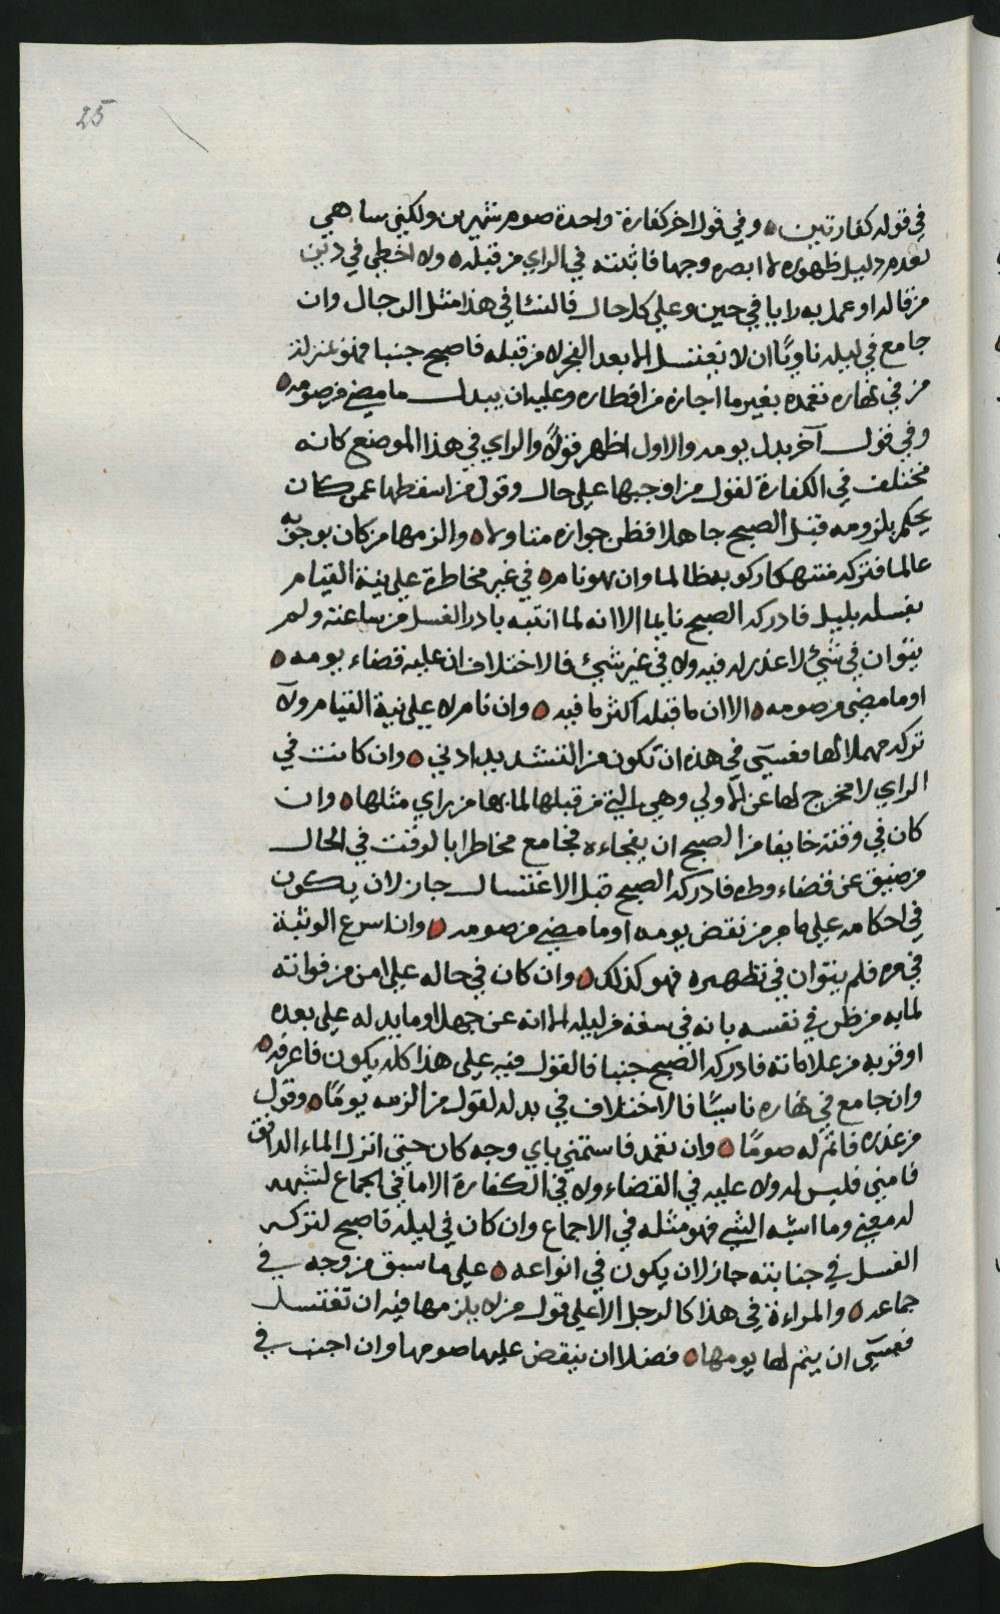 25
في قوله كفارتين ه وفي قول اخر كفارة واحدة صوم شهرين ولكني ساهي
لعدم دليل ظهوره لا ابصره وجها فاثبته في الراي من قبله ه ولا اخطي في دين
من قاله او عمل به رايا في حين وعلي كل حال فالنسا في هذا مثل الرجال وان
جامع في ليله ناويًا ان لا يغتسل الا بعد الفجر لا من قبله فاصبح جنبا فهو بمنزلة
من في نهاره تعمده بغير ما اجازه من افطاره وعليه ان يبدل ما مضي من صومه ه
وفي قول آخر بدل يومه والاول اظهر قولاً والراي في هذا الموضع كانه
مختلف في الكفارة لقول من اوجبها علي حال وقول من اسقطها عمن كان
يحكم بلزومه قبل الصبح جاهلا فظن جوازه متاولا ه والزمها من كان بوجوبه
عالما فتركه منتهكا ركوبه ظالما وان هو نام ه في غير مخاطرة علي نية القيام
لغسله بليل فادركه الصبح نايما الا انه لما انتبه بادر الغسل من ساعته ولم
يتوان في شيء لا عذر له فيه ولا في غير شيئ فالاختلاف ان عليه قضاء يومه ه
او ما مضي من صومه ه الا ان ما قبله اكثر ما فيه ه وان نام لا علي نية القيام ولا
تركه مهملا لها فعسى في هذه ان تكون من التشديد ادني ه وان كانت في
الراي لا مخرج لها عن الأولي وهي التي من قبلها لما بها من راي مثلها ه وان
كان في وقته خايفا من الصبح ان يفجاءه فجامع مخاطرا بالوقت في الحال
من ضيق عن قضاء وطره فادركه الصبح قبل الاغتسال جاز لان يكون
في احكامه علي ما مر من نقض يومه او ما مضي من صومه ه وان اسرع الوثبة
في مره فلم يتوان في تطهره فهو كذلك ه وان كان في حاله علي امن من فواته
لما به من ظن في نفسه بانه في سعة من ليله الا انه عن جهل او ما يدله علي بعده
او قربه من علاماته فادركه الصبح جنبا فالقول فيه علي هذا كله يكون فاعرفه ه
وان جامع في نهاره ناسيًا فالاختلاف في بدله لقول من الزمه يومًا ه وقول
من عذره فاتم له صومًا ه وان تعمد فاستمني باي وجه كان حتي انزل الماء الدافق
فامني فليس له ولا عليه في القضاء ولا في الكفارة الا ما في الجماع لتشبهه
له معني وما اشبه الشي فهو مثله في الاجماع وان كان في ليله فاصبح لتركه
الغسل في جنابته جاز لان يكون في انواعه ه علي ما سبق من وجه في
جماعه ه والمراءة في هذا كالرجل الا علي قول من لا يلزمها فيه ان تغتسل
فعسى ان يتم لها يومها ه فضلا ان ينقض عليها صومها وان اجنب في